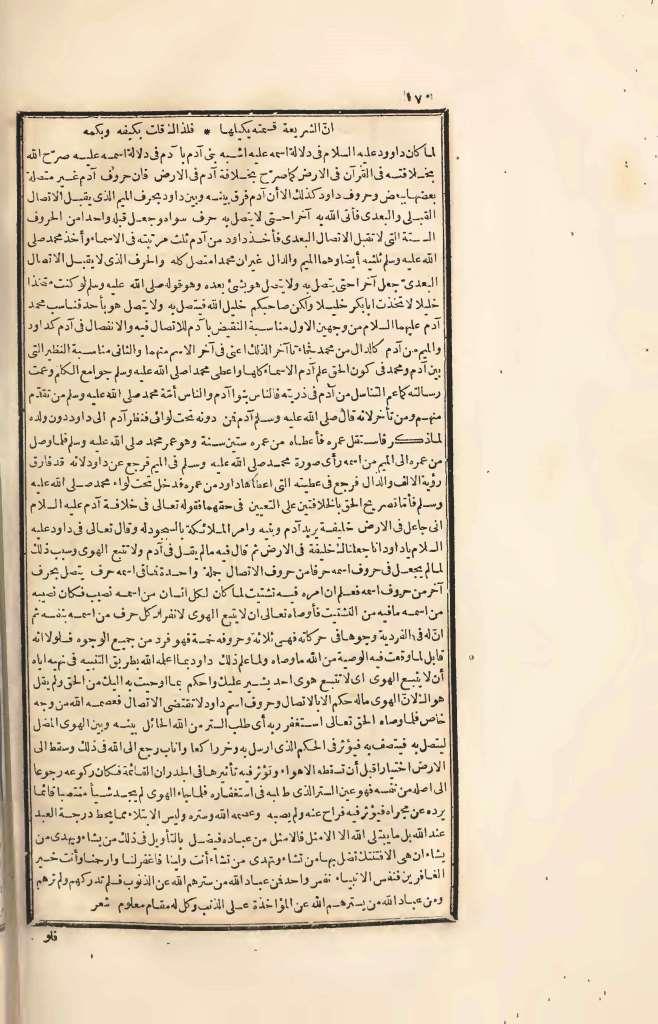 ١٧٠
انّ الشريعة قسمته بكيلها * فلذا الثقات بكيفه وبكمه
لما كان داوود عليه السلام فى دلالة اسمه عليه اشبه بنى آدم بآدم فى دلالة اسمه عليه صرّح الله
بخلافته فى القرآن فى الارض كما صرّح بخلافة آدم فى الارض فان حروف آدم غير متصلة
بعضها ببعض وحروف داود كذلك الا أن آدم فرق بينه وبين داود بحرف الميم الذى يقبل الاتصال
القبلى والبعدى فأتى الله به آخرا حتى لا يتصل به حرف سواه وجعل قبله واحدا من الحروف
الستة التى لا تقبل الاتصال البعدى فأخذ داود من آدم ثلث مرتبته فى الاسماء وأخذ محمد صلى
الله عليه وسلم ثلثيه أيضا وهما الميم والدال غير ان محمدا متصل كله والحرف الذى لا يقبل الاتصال
البعدىّ جعل آخرا حتى يتصل به ولا يتصل هو بشئ بعده وهو قوله صلى الله عليه وسلم لو كنت متخذا
خليلا لاتخذت ابا بكر خليلا ولكن صاحبكم خليل الله فيتصل به ولا يتصل هو بأحد فناسب محمد
آدم عليهما السلام من وجهين الاول مناسبة النقيض بآدم للاتصال فيه والانفصال فى آدم كداود
والميم من آدم كالدال من محمد فجاءتا آخرا لذلك اعنى فى آخر الاسم منهما والثانى مناسبة النظير التى
بين آدم ومحمد فى كون الحق علم آدم الاسماء كلها واعطى محمد اصلى الله عليه وسلم جوامع الكلم وعمت
رسالته كما عم التناسل من آدم فى ذريته فالناس بنو آدم والناس أمّة محمد صلى الله عليه وسلم من تقدّم
منهم ومن تأخر لانه قال صلى الله عليه وسلم آدم فمن دونه تحت لوائى فنظر آدم الى داود دون ولده
لما ذكر فاستقل عمره فأعطاه من عمره ستين سنة وهو عمر محمد صلى الله عليه وسلم فلما وصل
من عمره الى الميم من اسمه رأى صورة محمد صلى الله عليه وسلم فى الميم فرجع عن داود لانه قد فارق
رؤية الالف والدال فرجع فى عطيته التى اعطاها داود من عمره فدخل تحت لواء محمد صلى الله عليه
وسلم فأما تصريح الحق بالخلافتين على التعيين فى حقهما فقوله تعالى فى خلافة آدم عليه السلام
انى جاعل فى الارض خليفة يريد آدم وبنيه وامر الملائكة بالسجود له وقال تعالى فى داود عليه
السلام يا داود انا جعلناك خليفة فى الارض ثم قال فيه ما لم يقل فى آدم ولا تتبع الهوى وسبب ذلك
لما لم يجعل فى حروف اسمه حرفا من حروف الاتصال جملة واحدة فما فى اسمه حرف يتصل بحرف
آخر من حروف اسمه فعلم ان امره فيه تشتيت لما كان لكل انسان من اسمه نصيب فكان نصيبه
من اسمه ما فيه من التشتيت فأوصاه تعالى ان لا يتبع الهوى لانفراد كل حرف من اسمه بنفسه ثم
انّ له فى الفردية وجوها فى حركاته فهى ثلاثة وحروفه خمسة فهو فرد من جميع الوجوه فلولا انه
قابل لما وقعت فيه الوصية من الله ما وصاه ولما علم ذلك داود بما اعلمه الله بطريق التنبيه فى نهيه اياه
أن لا يتبع الهوى اى لا تتبع هوى احد يشير عليك واحكم بما اوحيت به اليك من الحق ولم يقل
هواك لانّ الهوى ماله حكم الا بالاتصال وحروف اسم داود لا تقتضى الاتصال فعصمه الله من وجه
خاص فلما وصاه الحق تعالى استغفر ربه أى طلب الستر من الله الحائل بينه وبين الهوى المضل
ليتصل به فيتصف به فيؤثر فى الحكم الذى ارسل به وخر راكعا واناب رجع الى الله فى ذلك وسقط الى
الارض اختيارا قبل أن تسقطه الاهواء وتؤثر فيه تأثيرها فى الجدران القائمة فكان ركوعه رجوعا
الى اصله من نفسه فهو عين الستر الذى طلبه فى استغفاره فلما جاء الهوى لم يجد شيأ منتصبا قائما
يرده عن مجراه فيؤثر فيه فراح عنه ولم يصبه وعصمه الله وستره وليس الابتلاء مما يحط درجة العبد
عند الله بل ما يبتلى الله الا الامثل فالامثل من عباده فيضل بالتأويل فى ذلك من يشاء ويهدى من
يشاء ان هى الا فتنتك تضل بها من تشاء وتهدى من تشاء أنت ولينا فاغفر لنا وارحمنا وأنت خير
الغافرين فنفس الانبياء نفس واحد فن عباد الله من سترهم الله عن الذنوب فلم تدركهم ولم ترهم
ومن عباد الله من يسترهم الله عن المؤاخذة على الذنب وكل له مقام معلوم شعر
فلو